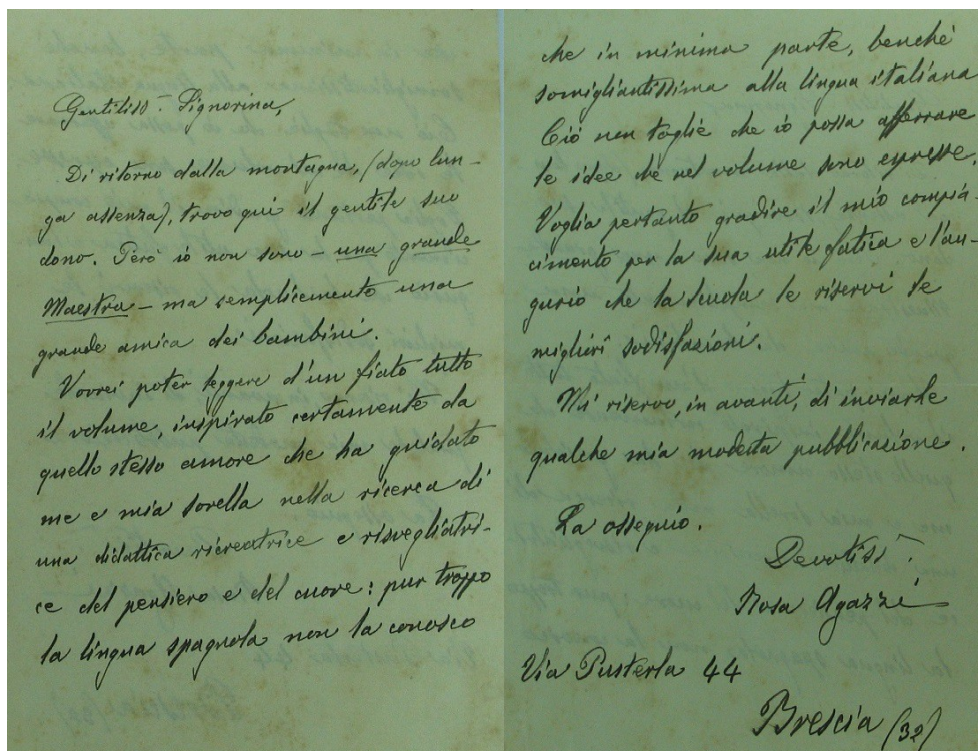 Gentiliss. Signorina,
Di ritorno dalla montagna, (dopo lun-
ga assenza), trovo qui il gentile suo
dono. Però io non sono - una grande
Maestra - ma semplicemente una
grande amica dei bambini.
Vorrei poter leggere d'un fiato tutto
il volume, inspirato certamente da
quello stesso amore che ha guidato
me e mia sorella nella ricerca di
una didattica ricreatrice e risvegliatri-
ce del pensiero e del cuore: pur troppo
la lingua spagnola non la conosco
che in minima parte, benchè
somigliantissima alla lingua italiana
Ciò non toglie che io possa afferrare
le idee che nel volume sono espresse.
Voglia pertanto gradire il mio compia-
cimento per la sua utile fatica e l'au-
gurio che la Scuola le riservi le
migliori sodisfazioni.
Mi riservo, in avanti, di inviarle
qualche mia modesta pubblicazione.
La ossequio.
Devotiss.
Rosa Agazzi
Via Pusterla 44
Brescia (32)